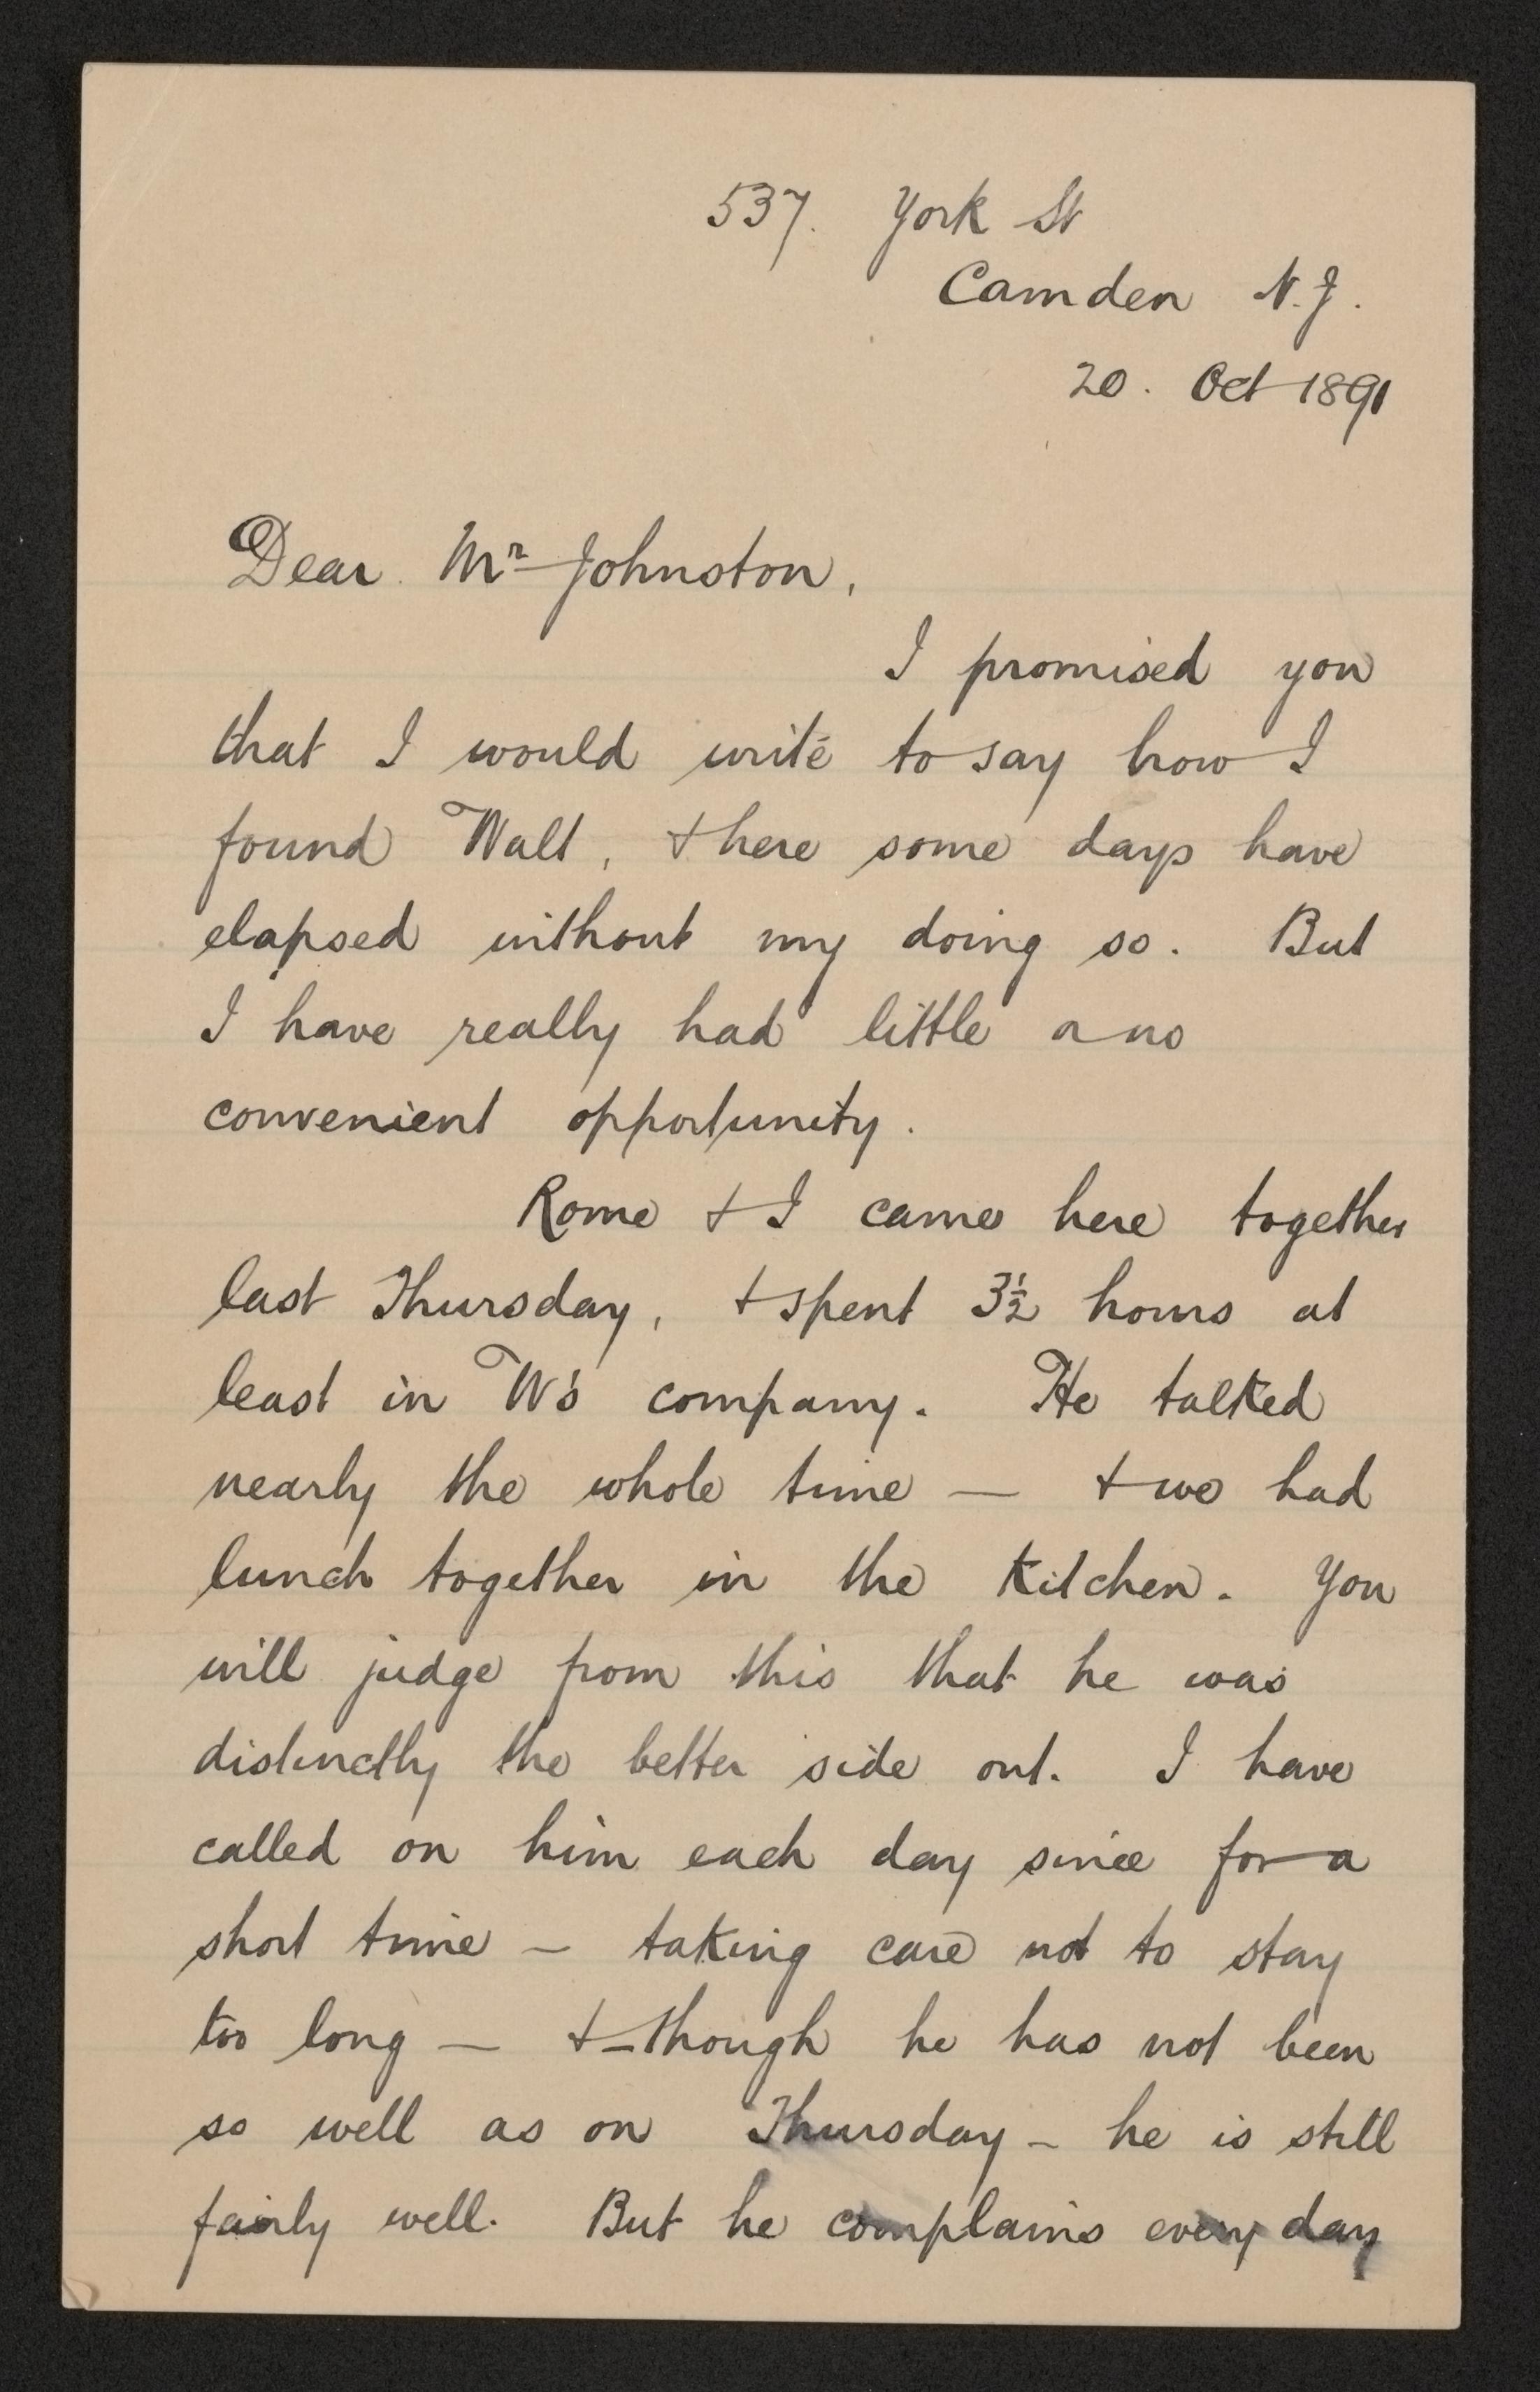 537. York St
Camden N.J.
20. Oct 1891
Dear Mr Johnston,
I promised you
that I would write to say how I
found Walt, & here some days have
elapsed without my doing so. But
I have really had little or no
convenient opportunity.
Rome & I came here together
last Thursday, & spent 3½ hours at
least in W's company. He talked
nearly the whole time — & we had
lunch together in the kitchen. You
will judge from this that he was
distinctly the better side out. I have
called on him each day since for a
short time — taking care not to stay
too long — & — though he has not been
so well as on Thursday — he is still
fairly well. But he complains every day